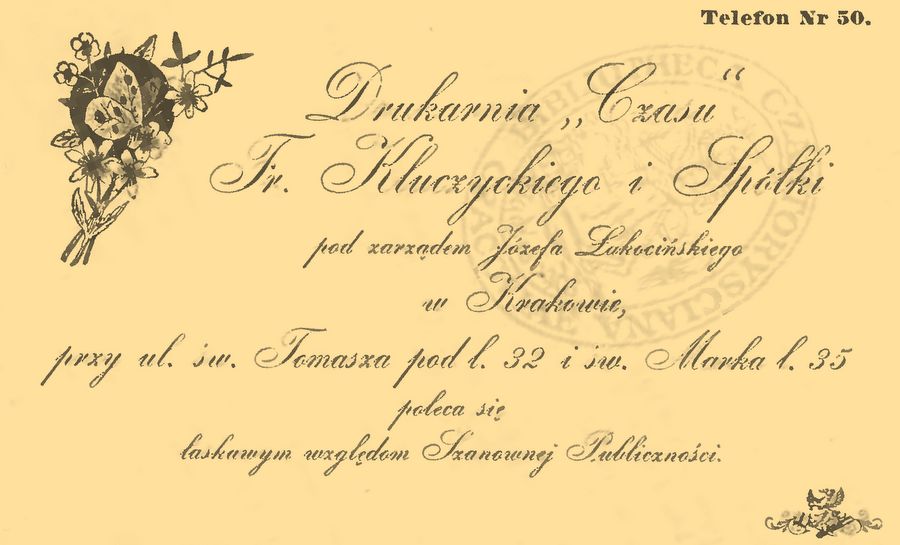 Telefon Nr 50.
Drukarnia „Czasu“
Fr. Kluczyckiego i Spółki
pod zarządem Józefa Łakocińskiego
w Krakowie,
przy ul. św. Tomasza pod l. 32 i św. Marka l. 35
poleca się
łaskawym względom Szanownej Publiczności.
BIBLIOTHECA CZARTORYSCIANA